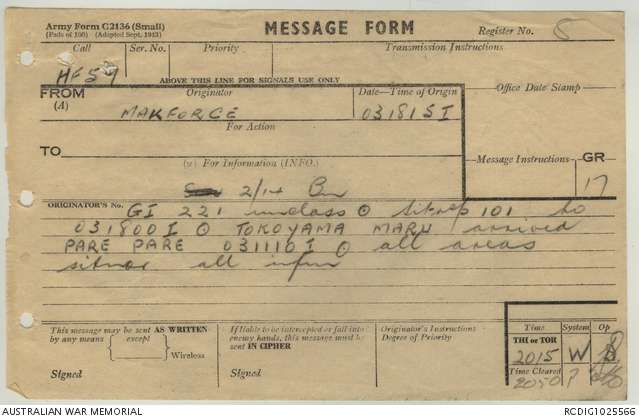 Army Form C2136 (Small)
(Pads of 100) (Adopted Sept. 1943)
MESSAGE FORM
Register No. 5
Call
Ser. No.
Priority
Transmission Instructions
HF59
ABOVE THIS LINE FOR SIGNALS USE ONLY
FROM
(A)
Originator
Date—Time of Origin
Office Date Stamp
MAKFORCE
031815 I
For Action
TO
(w) For Information (INFO.)
Message Instructions
GR
17
2/14 Bn
ORIGINATOR'S No.
GI 221 unclass O Sitrep 101 to
031800 I O TOKOYAMA MARU arrived
PARE PARE 031110 I O all areas
sitnor all infm
This message may be sent AS WRITTEN
by any means
except
Wireless
Signed
If liable to be intercepted or fall into
enemy hands, this message must be
sent IN CIPHER
Signed
Originator's Instructions
Degree of Priority
Time
System
Op
THI or TOR
2015 W
Time Cleared
2050 P
AUSTRALIAN WAR MEMORIAL
RCDIG1025566